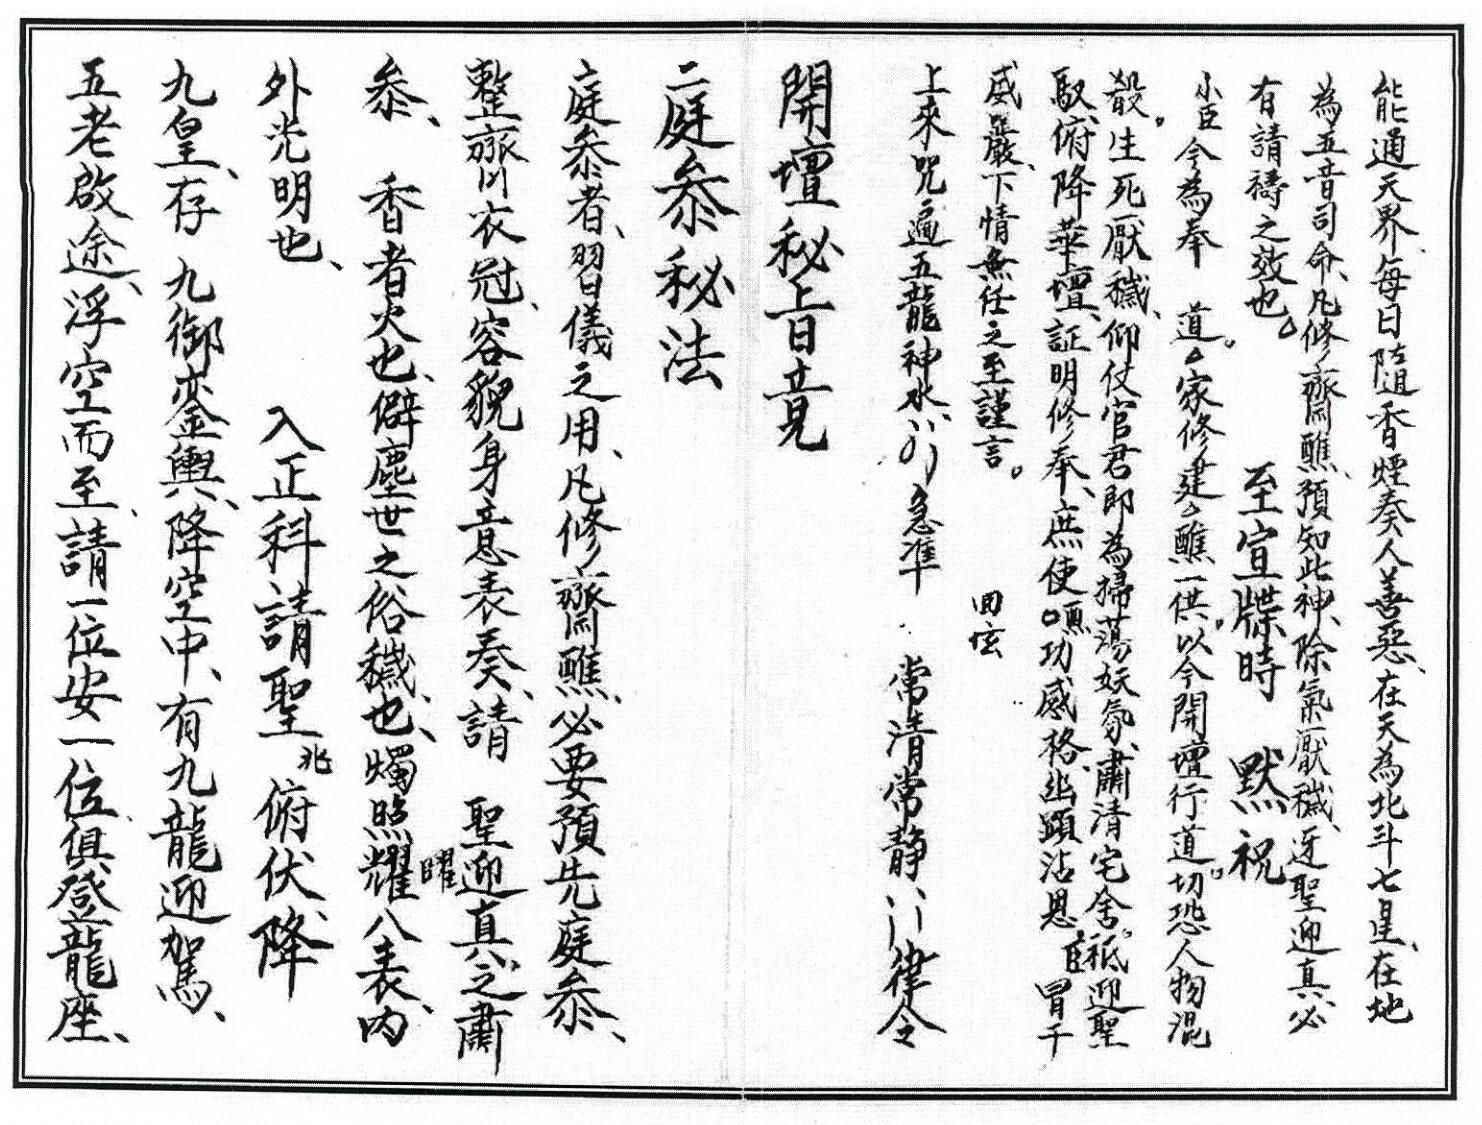 能通天界、每日隨香煙奏人善惡、在天為北斗七星、在地
為五音司命、凡修齋醮、預知此神、除氣厭穢、迓聖迎真、必
有請禱之效也。　至宣牒時　默祝
小臣今為奉　道。家修建、醮一供。以今開壇行道。切恐人物混
殽。生死厭穢、仰仗官君即為掃蕩妖氛、肅清宅舍。祗迎聖
馭、俯降華壇、証明修奉、庶使功感格、幽顕沾恩、臣冒干
威嚴、下情無任之至謹言。　回坛
上來咒遍五龍神水　急準　常清常静　律令
開壇秘旨意見
二庭叅秘法
庭叅者、習儀之用、凡修齋醮、必要預先庭叅、
整齊衣冠、容貌身意表奏、請　聖迎真、之肅
叅、　香者火也、僻塵世之俗穢也、燭照耀八表、内
曜
外光明也、　入正科請聖　兆　俯伏、降
九皇、存　九御鑾輿、降空中、有九龍迎駕、
五老啟途、浮空而至、請一位安一位、俱登龍座、